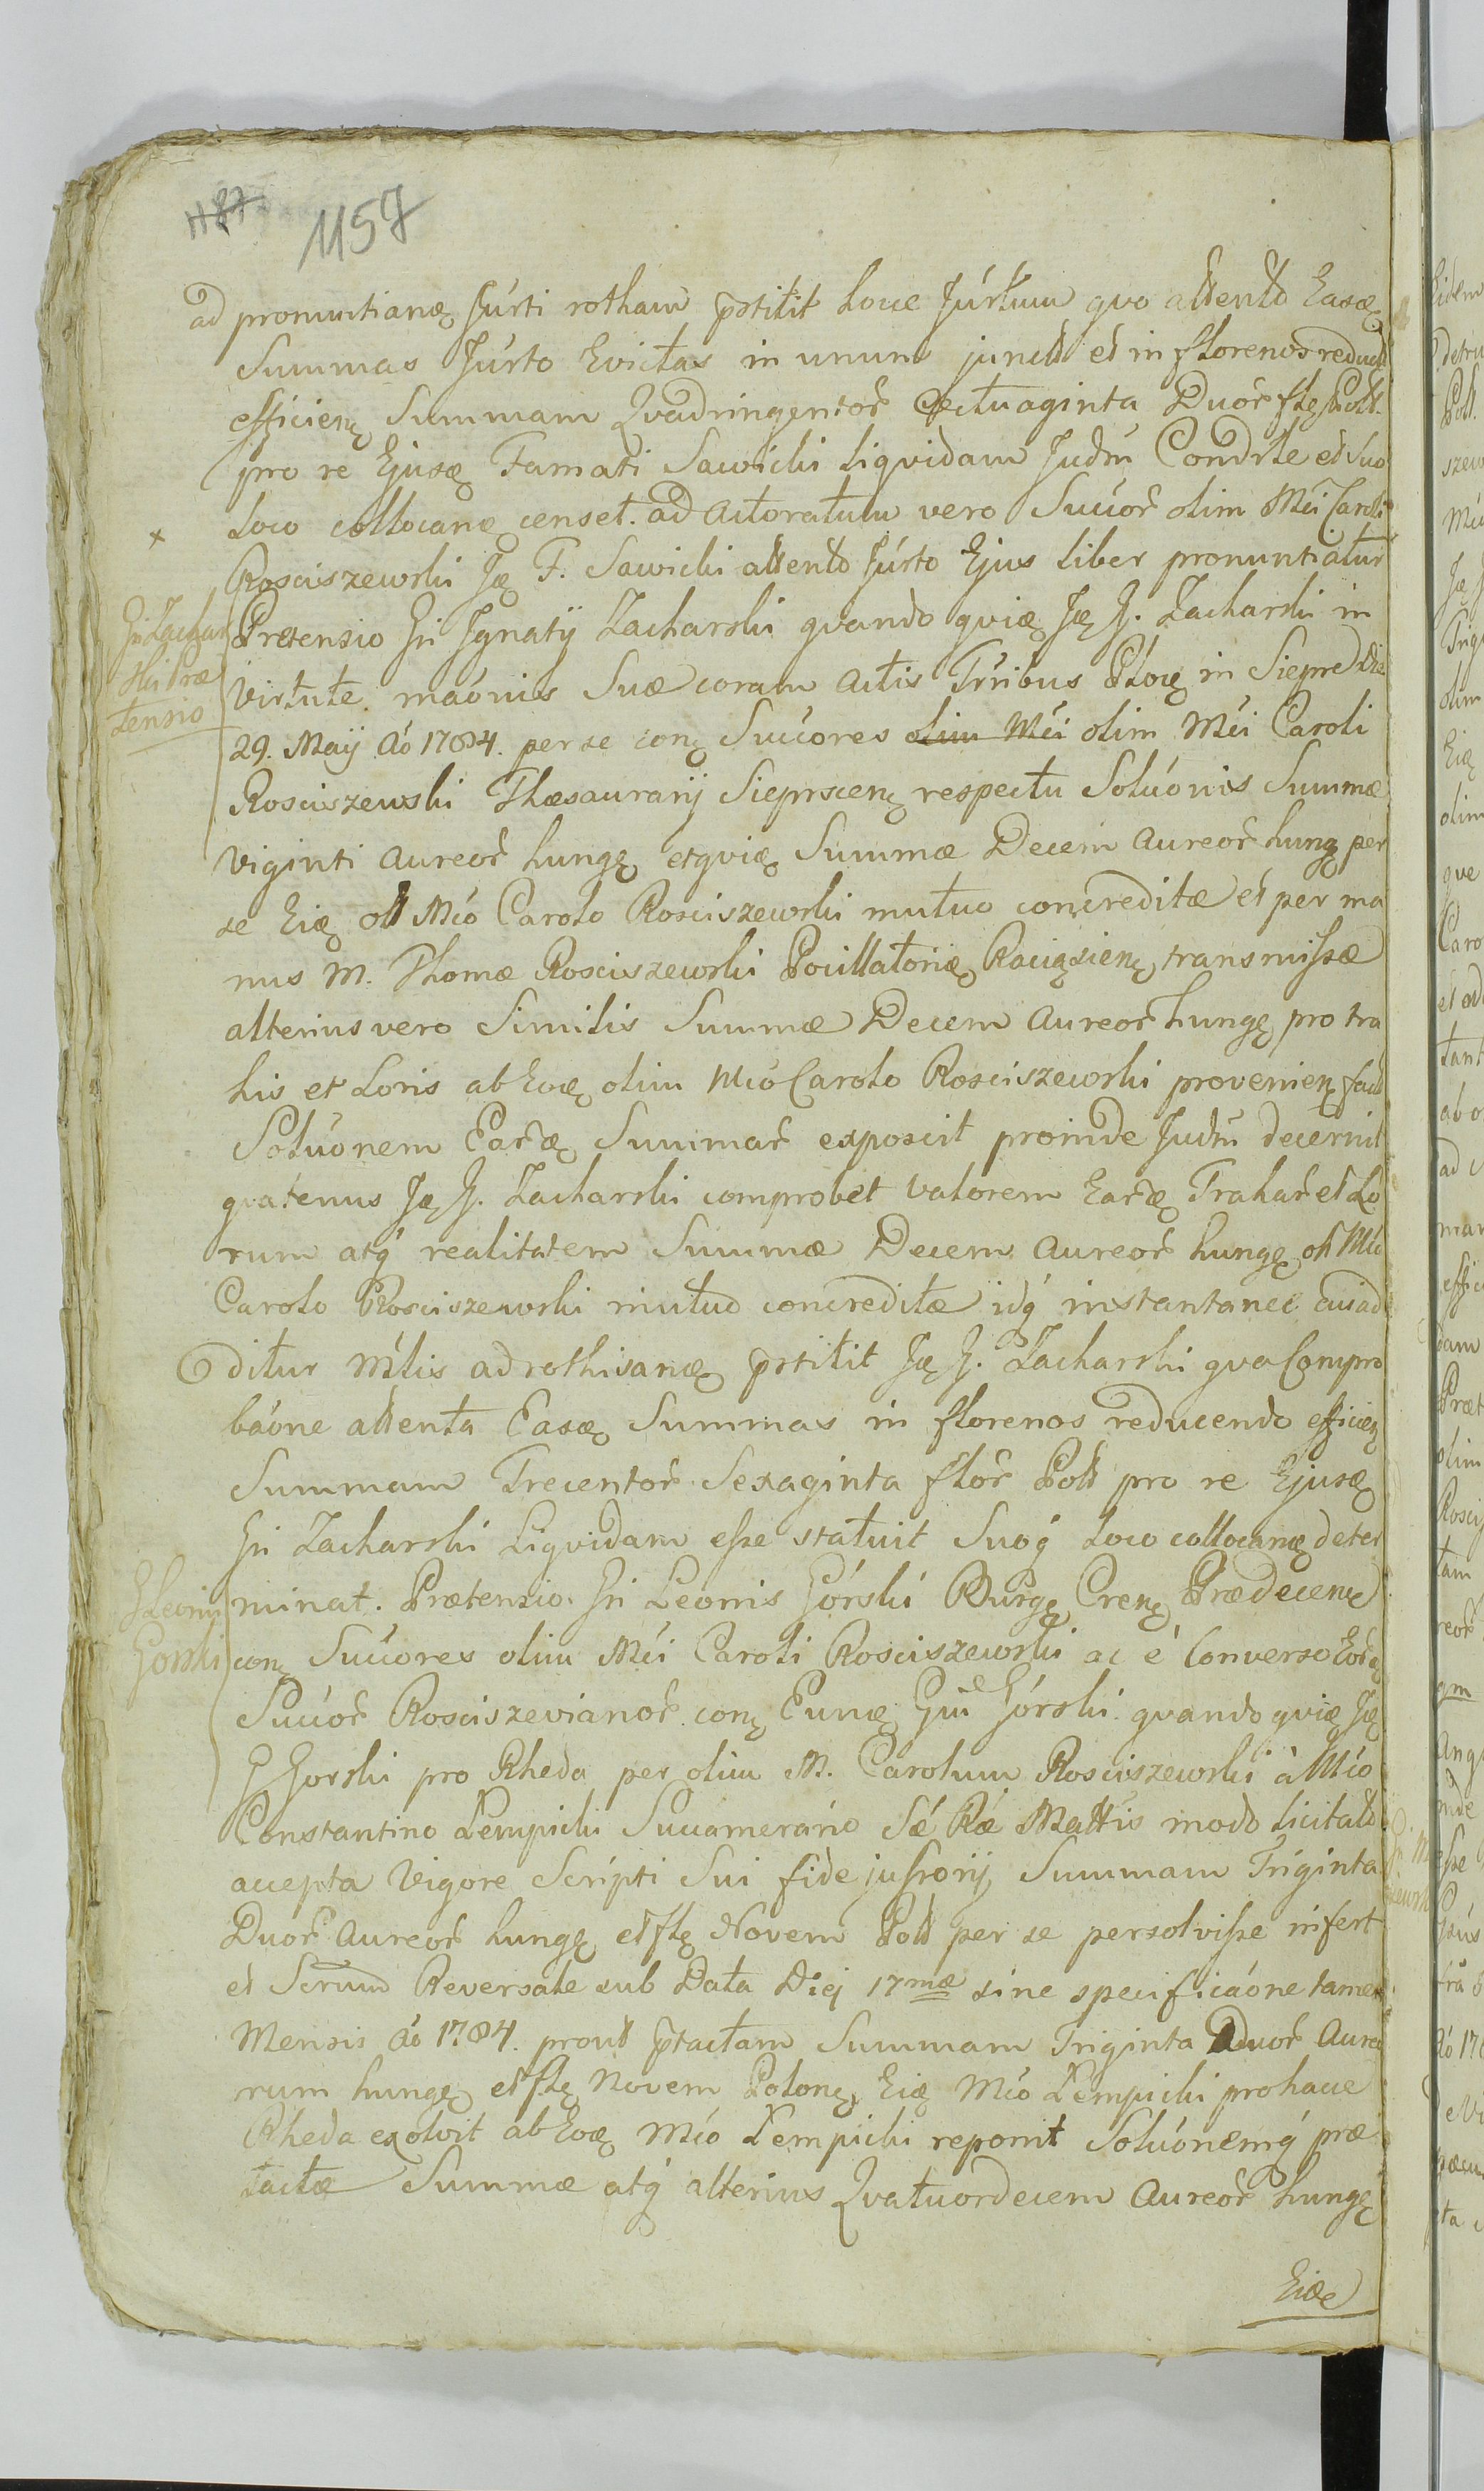 1187 1157
ad pronuntianę Jurti rotham prtitit houe Júrtum qvo attento Easę
Summas Júrto Evictas in unum junctt et in florenos reduct
efficienę Summam Qvadringentoř Octuaginta Duoř flę Poll.
pro re Ejusę Famati Sawicki liqvidam Judm̃ Condit́e et Suo
x Loco collocanę censet. ad Actoratum vero Succoř olim Mći Caroli
Rosciszewski Ję F. Sawicki attento Júrto Ejus liber pronuntiatur
Gñi Zachar
ski Præ
tensio
Prætensio Gñi Jgnatÿ Zacharski qvando qvię Ję J. Zacharski in
Virtute maónis Suæ coram Actis Trribus Płocę in Sieprc die
29. Maÿ Aó 1784. per se conę Succores olim Mći olim Mći Caroli
Rosciszewski Thæsaurarÿ Sieprscenę respectu Solúonis Summæ
Viginti Aureoř hungę etqvię Summæ Decem Aureoř hungę per
se Eię oll Mćo Carolo Rosciszewski mutuo concreditæ et per ma
nus M. Thomæ Rosciszewski Pocillatorię Raciązienę transmissæ
alterius vero Similis Summæ Decem Aureoř hungę pro tra
his et Loris ab Eoę olim Mćo Carolo Rosciszewski provenienę fact
Solúonem Earę Summař exposcit proinde Judm̃ decernit
qvatenus Ję J. Zacharski comprobet Valorem Earę Trahař et Lo
rum atq́ realitatem Summæ Decem Aureoř hungę oll Mćo
Carolo Rosciszewski mutuo concreditæ idq́ instantanee cui ad
ditur Mĩlis ad rothisanę prtitit Ję J. Zacharski qva Compro
báone attenta Easę Summas in florenos reducendo efficienę
Summam Trecentoř Sexaginta floř Poll pro re Ejusę
Gñi Zacharski Liqvidam esse statuit Suoq́ Loco collocanę deter
G Leonis
Gorski
minat. Prætensio Gñi Leonis Górski Burgę Crenę Prædecenę
conę Succores olim Mći Caroli Rosciszewski ac è Converso Eořę
Succoř Rosciszevianoř conę Eumę Gñũ Górski qvando qvię Ję
G Gorski pro Rheda per olim M. Carolum Rosciszewski à Mćo
Constantino Łempicki Succamerário Sæ Ræ Mattis modo licitato
accepta Vigore Scripti Sui fide jussorÿ Summam Triginta
Duoř Aureoř hungę et flę Novem Poll per se persolvisse infert
et Scrum Reversale sub Data Diej 17mæ sine specificáone tamen
Mensis Aó 1784. prout prtactam Summam Triginta Duoř Aureo
rum hungę et flę Novem Polonę Eię Mćo Łempicki pro hacce
Rheda exolvit ab Eoę Mćo Łempicki reponit Solúonemq́ præ
tactæ Summæ atq́ alterius Qvatuordecem Aureoř hungę
Eidę